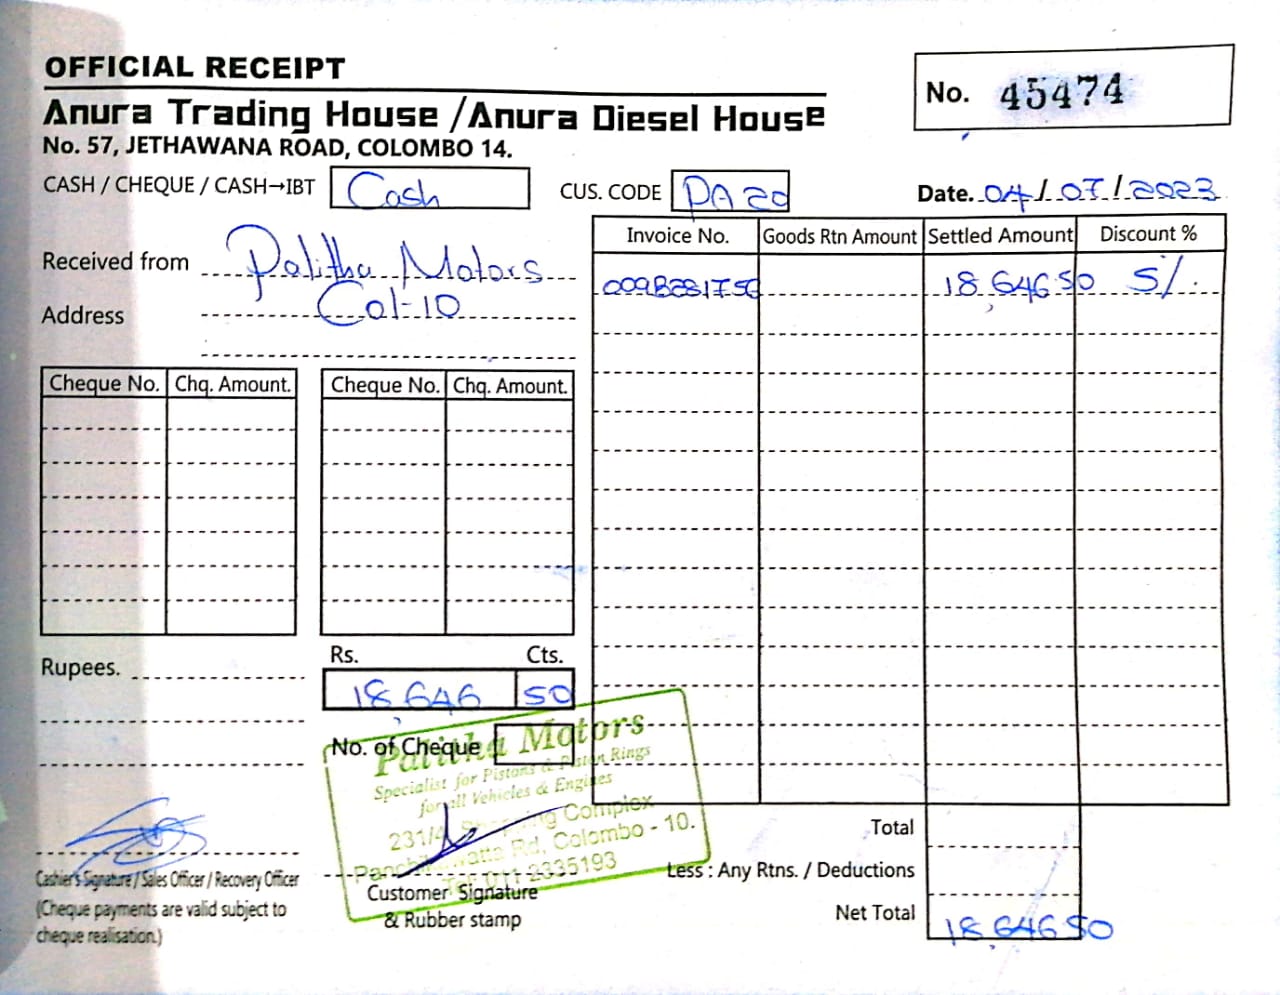 OFFICIAL RECEIPT
No. 45474
Anura Trading House / Anura Diesel House
No. 57, JETHAWANA ROAD, COLOMBO 14.
CASH / CHEQUE / CASH→IBT Cash
CUS. CODE PA 20
Date. 04/07/2023
Received from Palitha Motors
Address Col-10
Invoice No. Goods Rtn Amount Settled Amount Discount %
18,646 50 5/.
Cheque No. Chq. Amount. Cheque No. Chq. Amount.
Rupees.
Rs. Cts.
18,646 50
No. of Cheque
Palitha Motors
Specialist for Pistons & Piston Rings
for all Vehicles & Engines
231/4, Shopping Complex
Panchikawatta Rd, Colombo - 10.
Tel: 011 2335193
Cashier's Signature / Sales Officer / Recovery Officer
(Cheque payments are valid subject to
cheque realisation.)
Customer Signature
& Rubber stamp
Total
Less : Any Rtns. / Deductions
Net Total 18,646 50